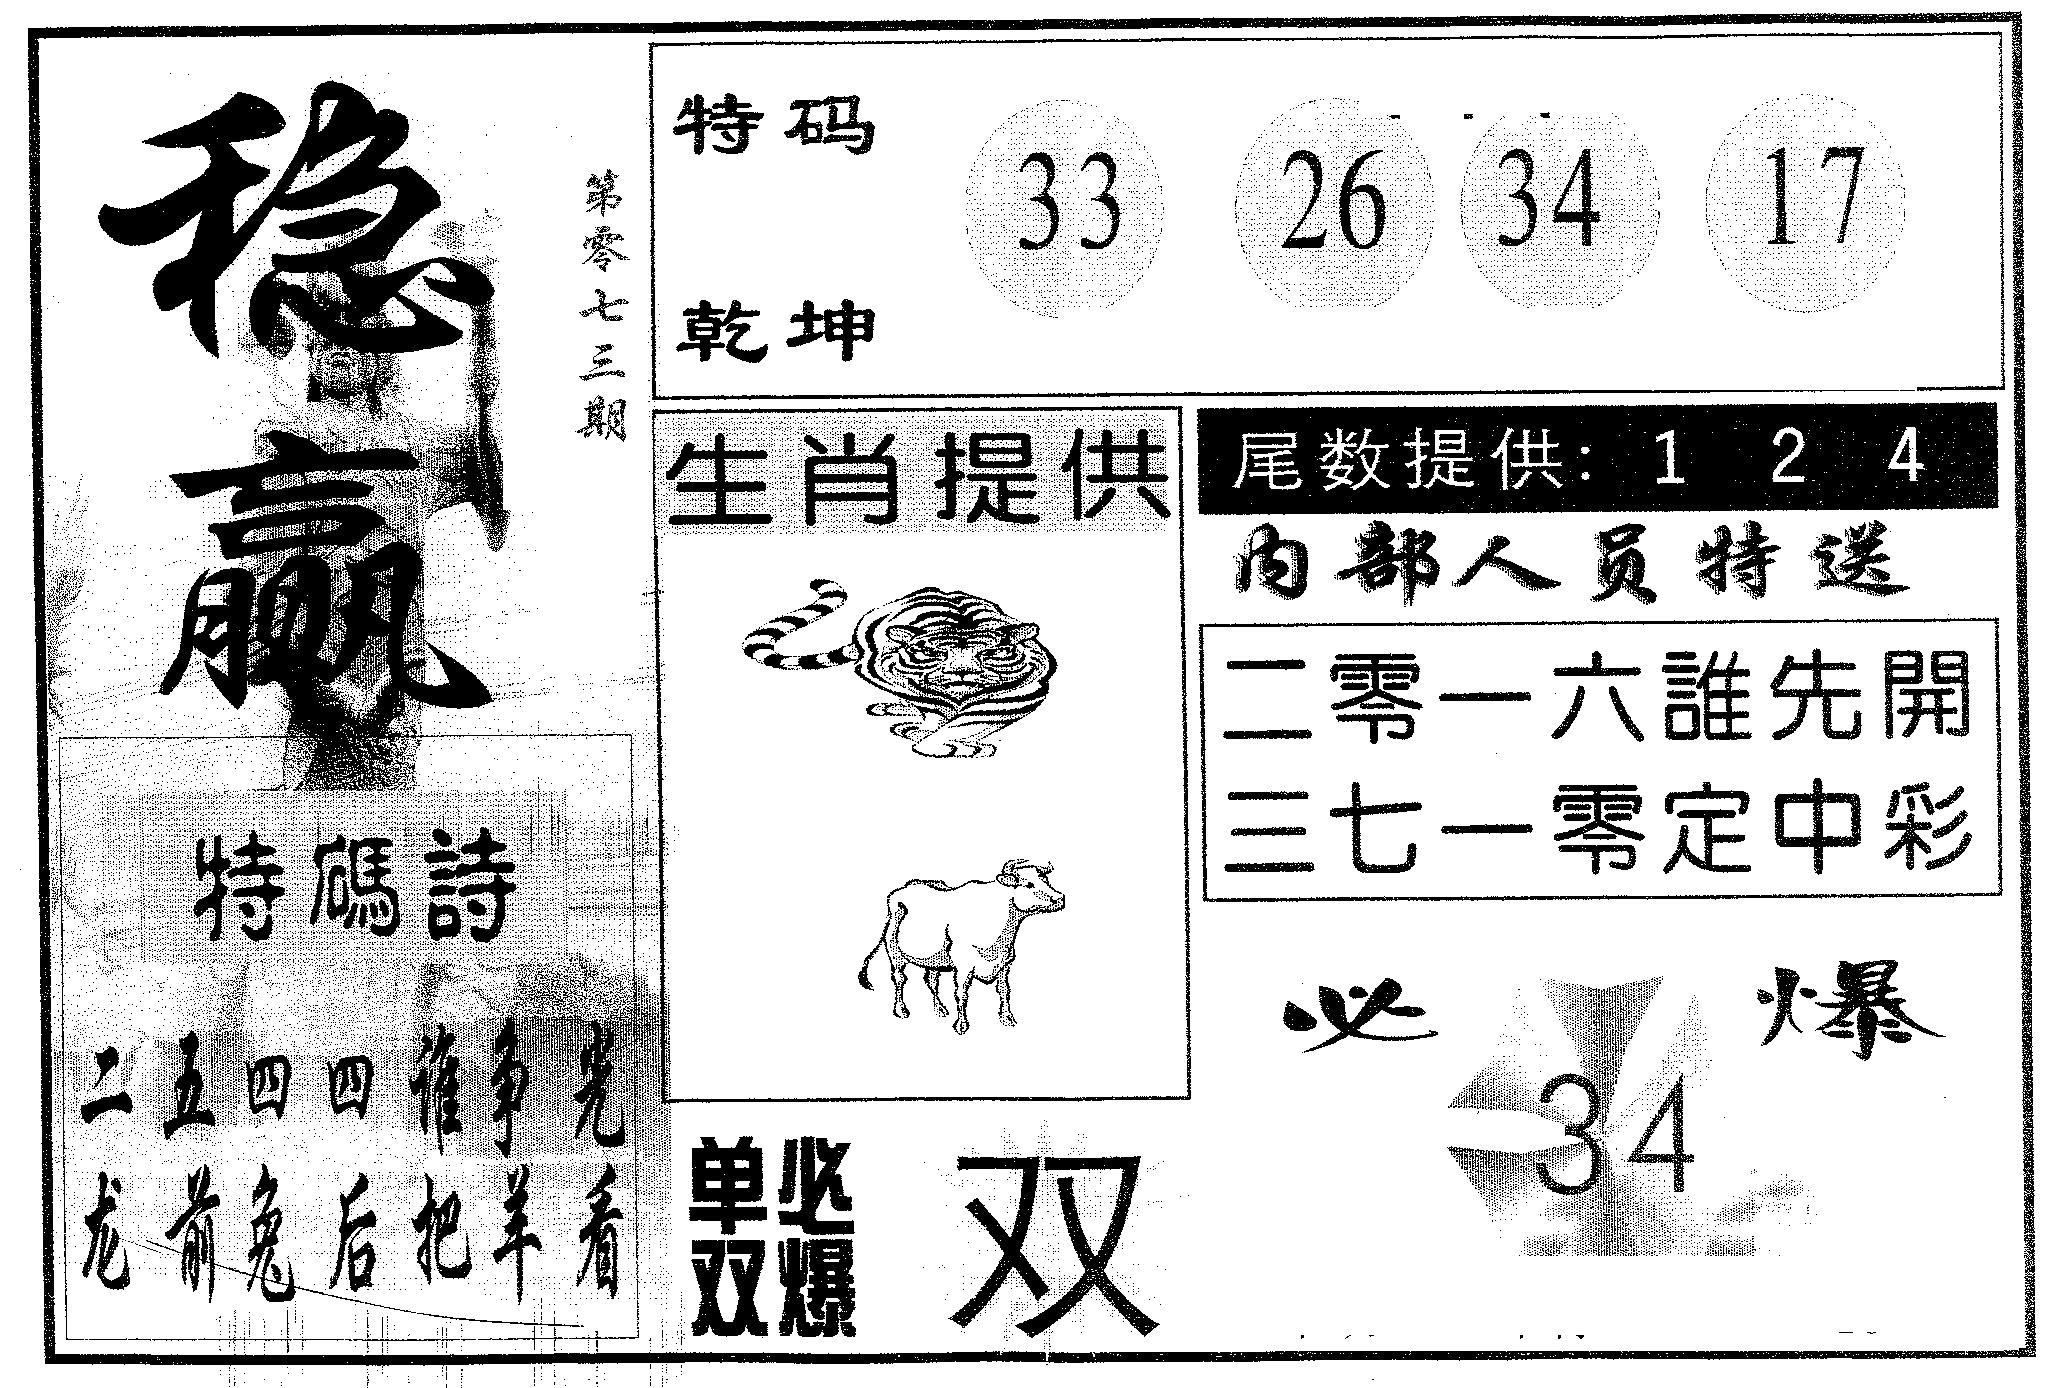 稳赢
第零七三期
特码
乾坤
33 26 34 17
生肖提供
尾数提供: 1 2 4
内部人员特送
二零一六誰先開
三七一零定中彩
特碼詩
二五四四谁争光
龙前兔后把羊看
单双
必爆
双
必爆
34